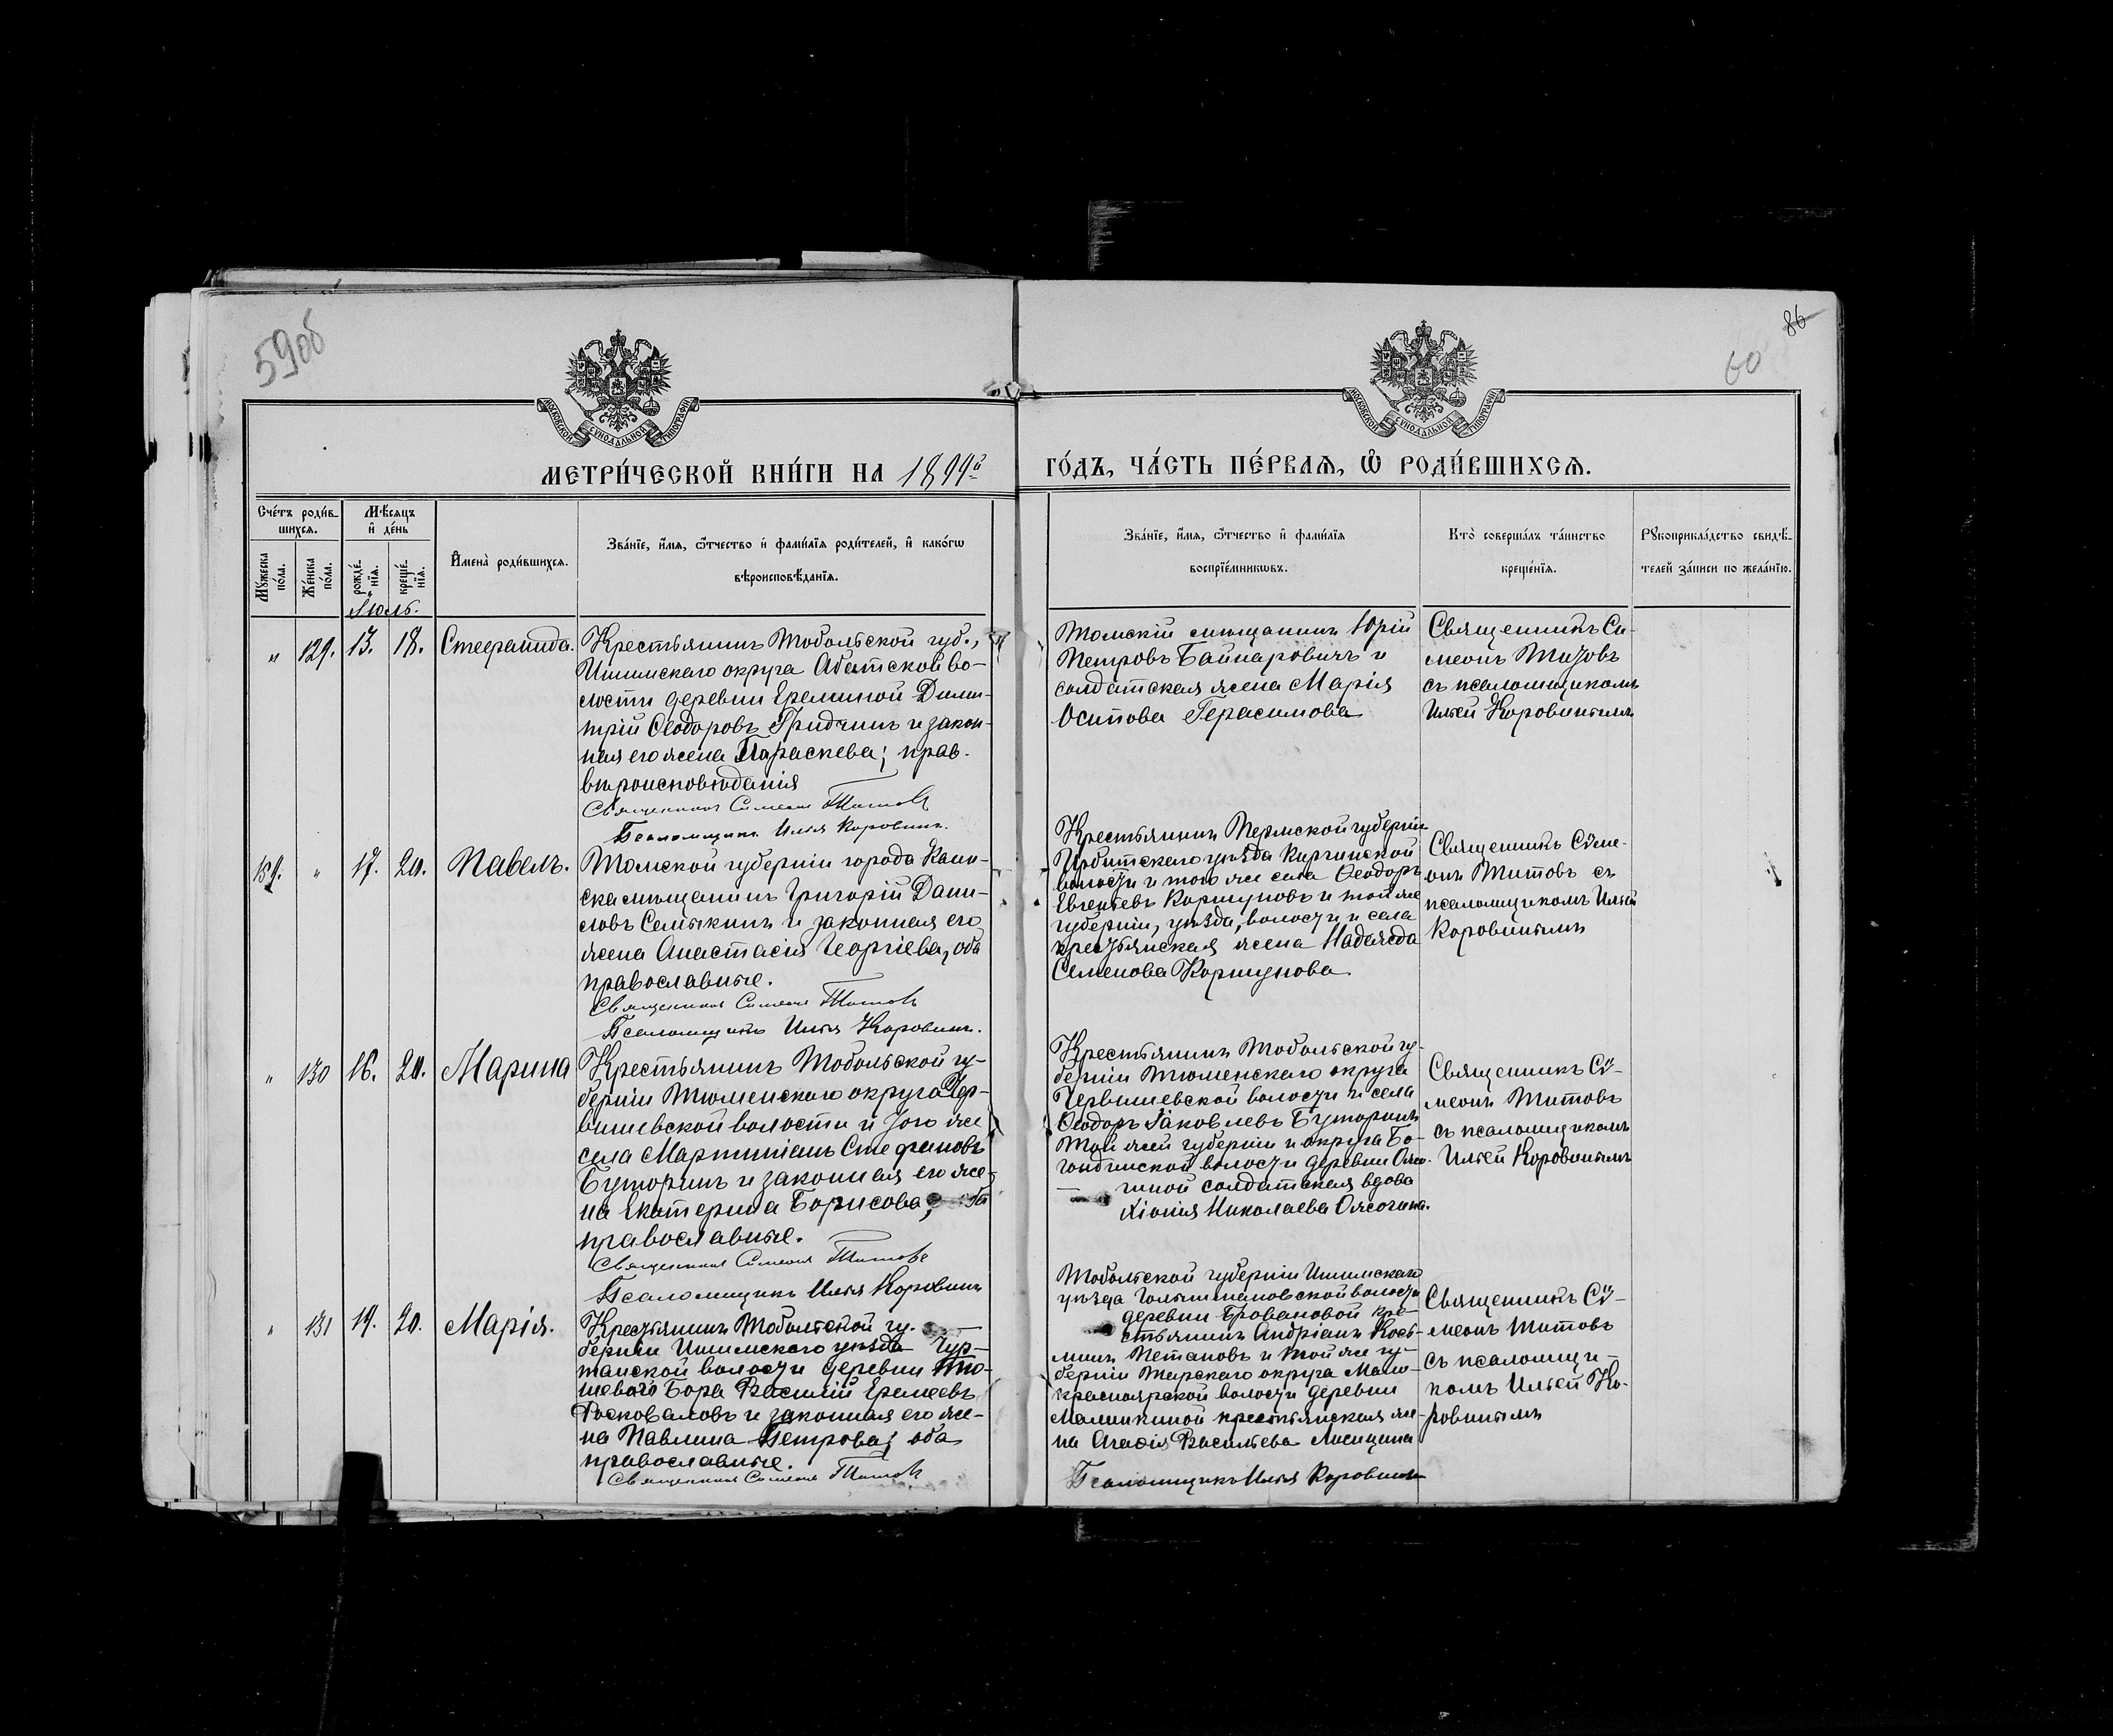 59об
86
60
МОСКОВСКОЙ СѴНОДАЛЬНОЙ ТИПОГРАФІИ
МОСКОВСКОЙ СѴНОДАЛЬНОЙ ТИПОГРАФІИ
МЕТРИ́ЧЕСКОЙ КНИ́ГИ НА 1899й
ГО́ДЪ, ЧА́СТЬ ПЕ́РВАЯ, Ѡ҆ РОДИ́ВШИХСЯ.
Сче́тъ роди́в-
шихся.
Мѣ́сяцъ
и҆ де́нь
Мꙋ́жеска по́ла.
Же́нска по́ла.
рожде́-
нїѧ.
креще́-
нїѧ.
И҆мена̀ роди́вшихся.
Зва́нїе, и҆́мѧ, ѻ҆́тчество и҆ фами́лїѧ роди́телей, и҆ како́гѡ
вѣроисповѣ́данїѧ.
Зва́нїе, и҆́мѧ, ѻ҆́тчество и҆ фами́лїѧ
воспрїе́мникѡвъ.
Кто̀ соверша́лъ та́инство
креще́нїѧ.
Рꙋкоприкла́дство свидѣ́-
телей за́писи по жела́нїю.
Іюль.
„ 129. 13. 18. Стефанида.
Крестьянинъ Тобольской губ.,
Ишимскаго округа Абатской во-
лости деревни Ереминой Дими-
трій Ѳеодоровъ Гридчинъ и закон-
ная его жена Параскева; прав.
вѣроисповѣданія
Священникъ Симеонъ Титовъ
Псаломщикъ Илья Коровинъ.
Томскій мѣщанинъ Юрій
Петровъ Байнаровичъ и
солдатская жена Марія
Осипова Герасимова
Священникъ Си-
меонъ Титовъ
съ псаломщикомъ
Ильей Коровинымъ
„ 17. 20. Павелъ.
Томской губерніи города Каин-
ска мѣщанинъ Григорій Дани-
ловъ Семыкинъ и законная его
жена Анастасія Георгіева, оба
православные.
Священникъ Симеонъ Титовъ
Псаломщикъ Илья Коровинъ.
Крестьянинъ Пермской губерніи
Ирбитскаго уѣзда Киргинской
волости и того же села Ѳеодоръ
Евгеніевъ Коршуновъ и той же
губерніи, уѣзда, волости и села
крестьянская жена Надежда
Семенова Коршунова
Священникъ Сѵме-
онъ Титовъ съ
псаломщикомъ Ильей
Коровинымъ
„ 130 16. 20. Марина
Крестьянинъ Тобольской гу-
берніи Тюменскаго округа Чер-
вишевской волости и того же
села Мартиніанъ Стефановъ
Буторинъ и законная его же-
на Екатерина Борисова, оба
православные.
Священникъ Симеонъ Титовъ
Псаломщикъ Илья Коровинъ
Крестьянинъ Тобольской гу-
берніи Тюменскаго округа
Червишевской волости и села
Ѳеодоръ Іаковлевъ Буторинъ
Той же губерніи и округа Бо-
гандинской волости деревни
гиной солдатская вдова
Хіонія Николаева
Священникъ Сѵ-
меонъ Титовъ
съ псаломщикомъ
Ильей Коровинымъ
„ 131 19. 20. Марія.
Крестьянинъ Тобольской гу-
берніи Ишимскаго уѣзда Чур-
танской волости деревни
Бора Василій Еремеевъ
Росковаловъ и законная его же-
на Павлина Петрова; оба
православные.
Священникъ Симеонъ Титовъ
Тобольской губерніи Ишимскаго
уѣзда Голышмановской волости
деревни кре-
стьянинъ Андріанъ Кось-
минъ и той же гу-
берніи Тарскаго округа Мало-
красноярской волости деревни
Малинкиной крестьянская же-
на Агаѳія Васильева Лисицина
Псаломщикъ Илья Коровинъ
Священникъ Сѵ-
меонъ Титовъ
съ псаломщи-
комъ Ильей Ко-
ровинымъ